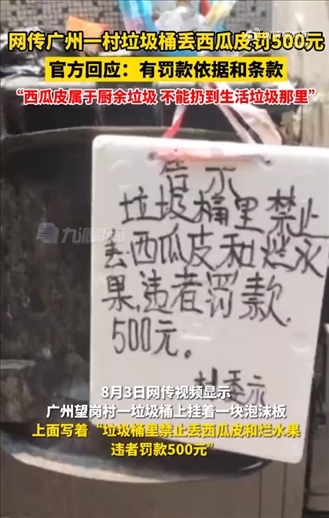 网传广州一村垃圾桶丢西瓜皮罚500元
官方回应：有罚款依据和条款
“西瓜皮属于厨余垃圾 不能扔到生活垃圾那里”
九派新闻
告示
垃圾桶里禁止
丢西瓜皮和烂水
果,违者罚款
500元。
8月3日网传视频显示
广州望岗村一垃圾桶上挂着一块泡沫板
上面写着“垃圾桶里禁止丢西瓜皮和烂水果
违者罚款500元”